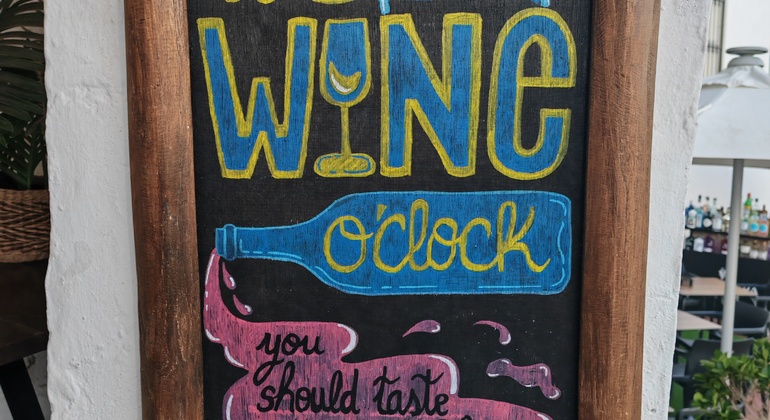 WINE
o'clock
you
should taste